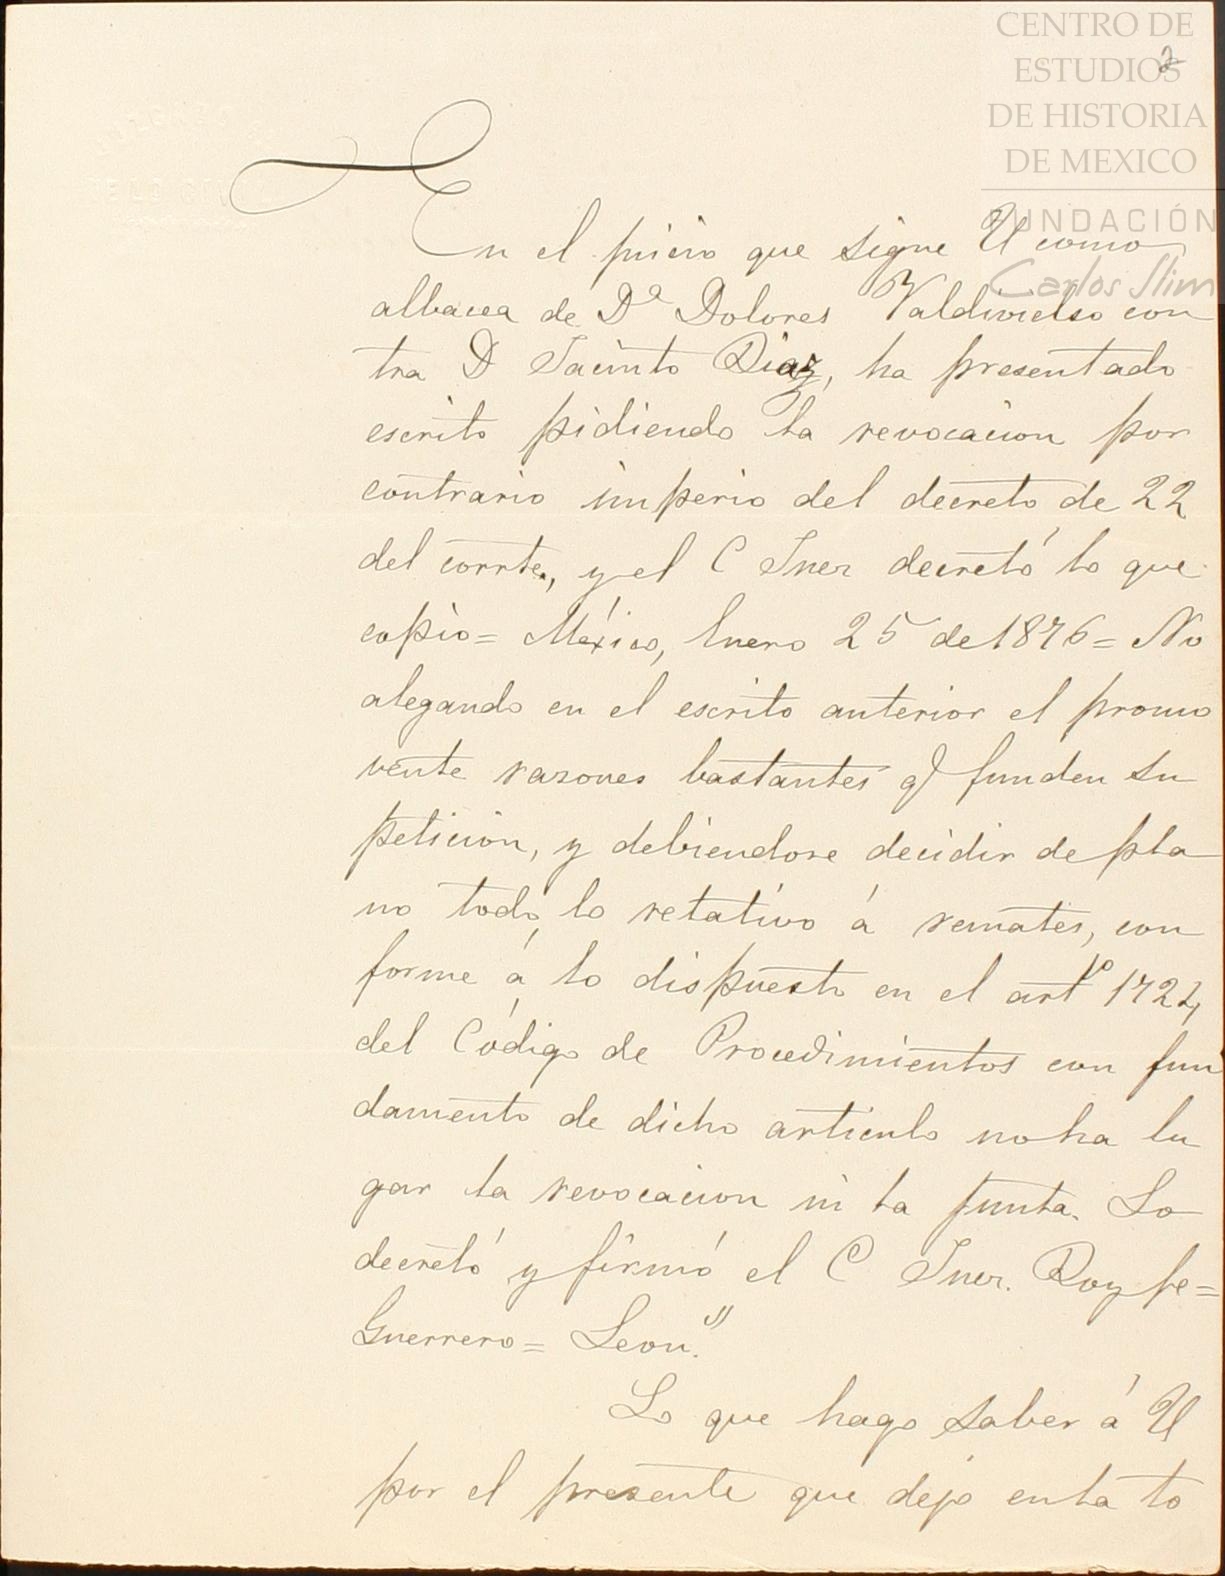 CENTRO DE
ESTUDIOS
DE HISTORIA
DE MEXICO
FUNDACIÓN
Carlos Slim
2
En el juicio que sigue U como
albacea de Dª Dolores Valdivielso con
tra D Jacinto Diaz, ha presentado
escrito pidiendo la revocacion por
contrario imperio del decreto de 22
del corrte, y el C Juez decretó lo que
copio= México, Enero 25 de 1876= No
alegando en el escrito anterior el promo
vente razones bastantes q funden su
peticion, y debiendose decidir de pla
no todo lo relativo á remates, con
forme á lo dispuesto en el artº 1722,
del Código de Procedimientos con fun
damento de dicho articulo no ha lu
gar la revocacion ni la junta. Lo
decretó y firmó el C Juez. Doy fe=
Guerrero= Leon."
Lo que hago saber á U
por el presente que dejo en la to